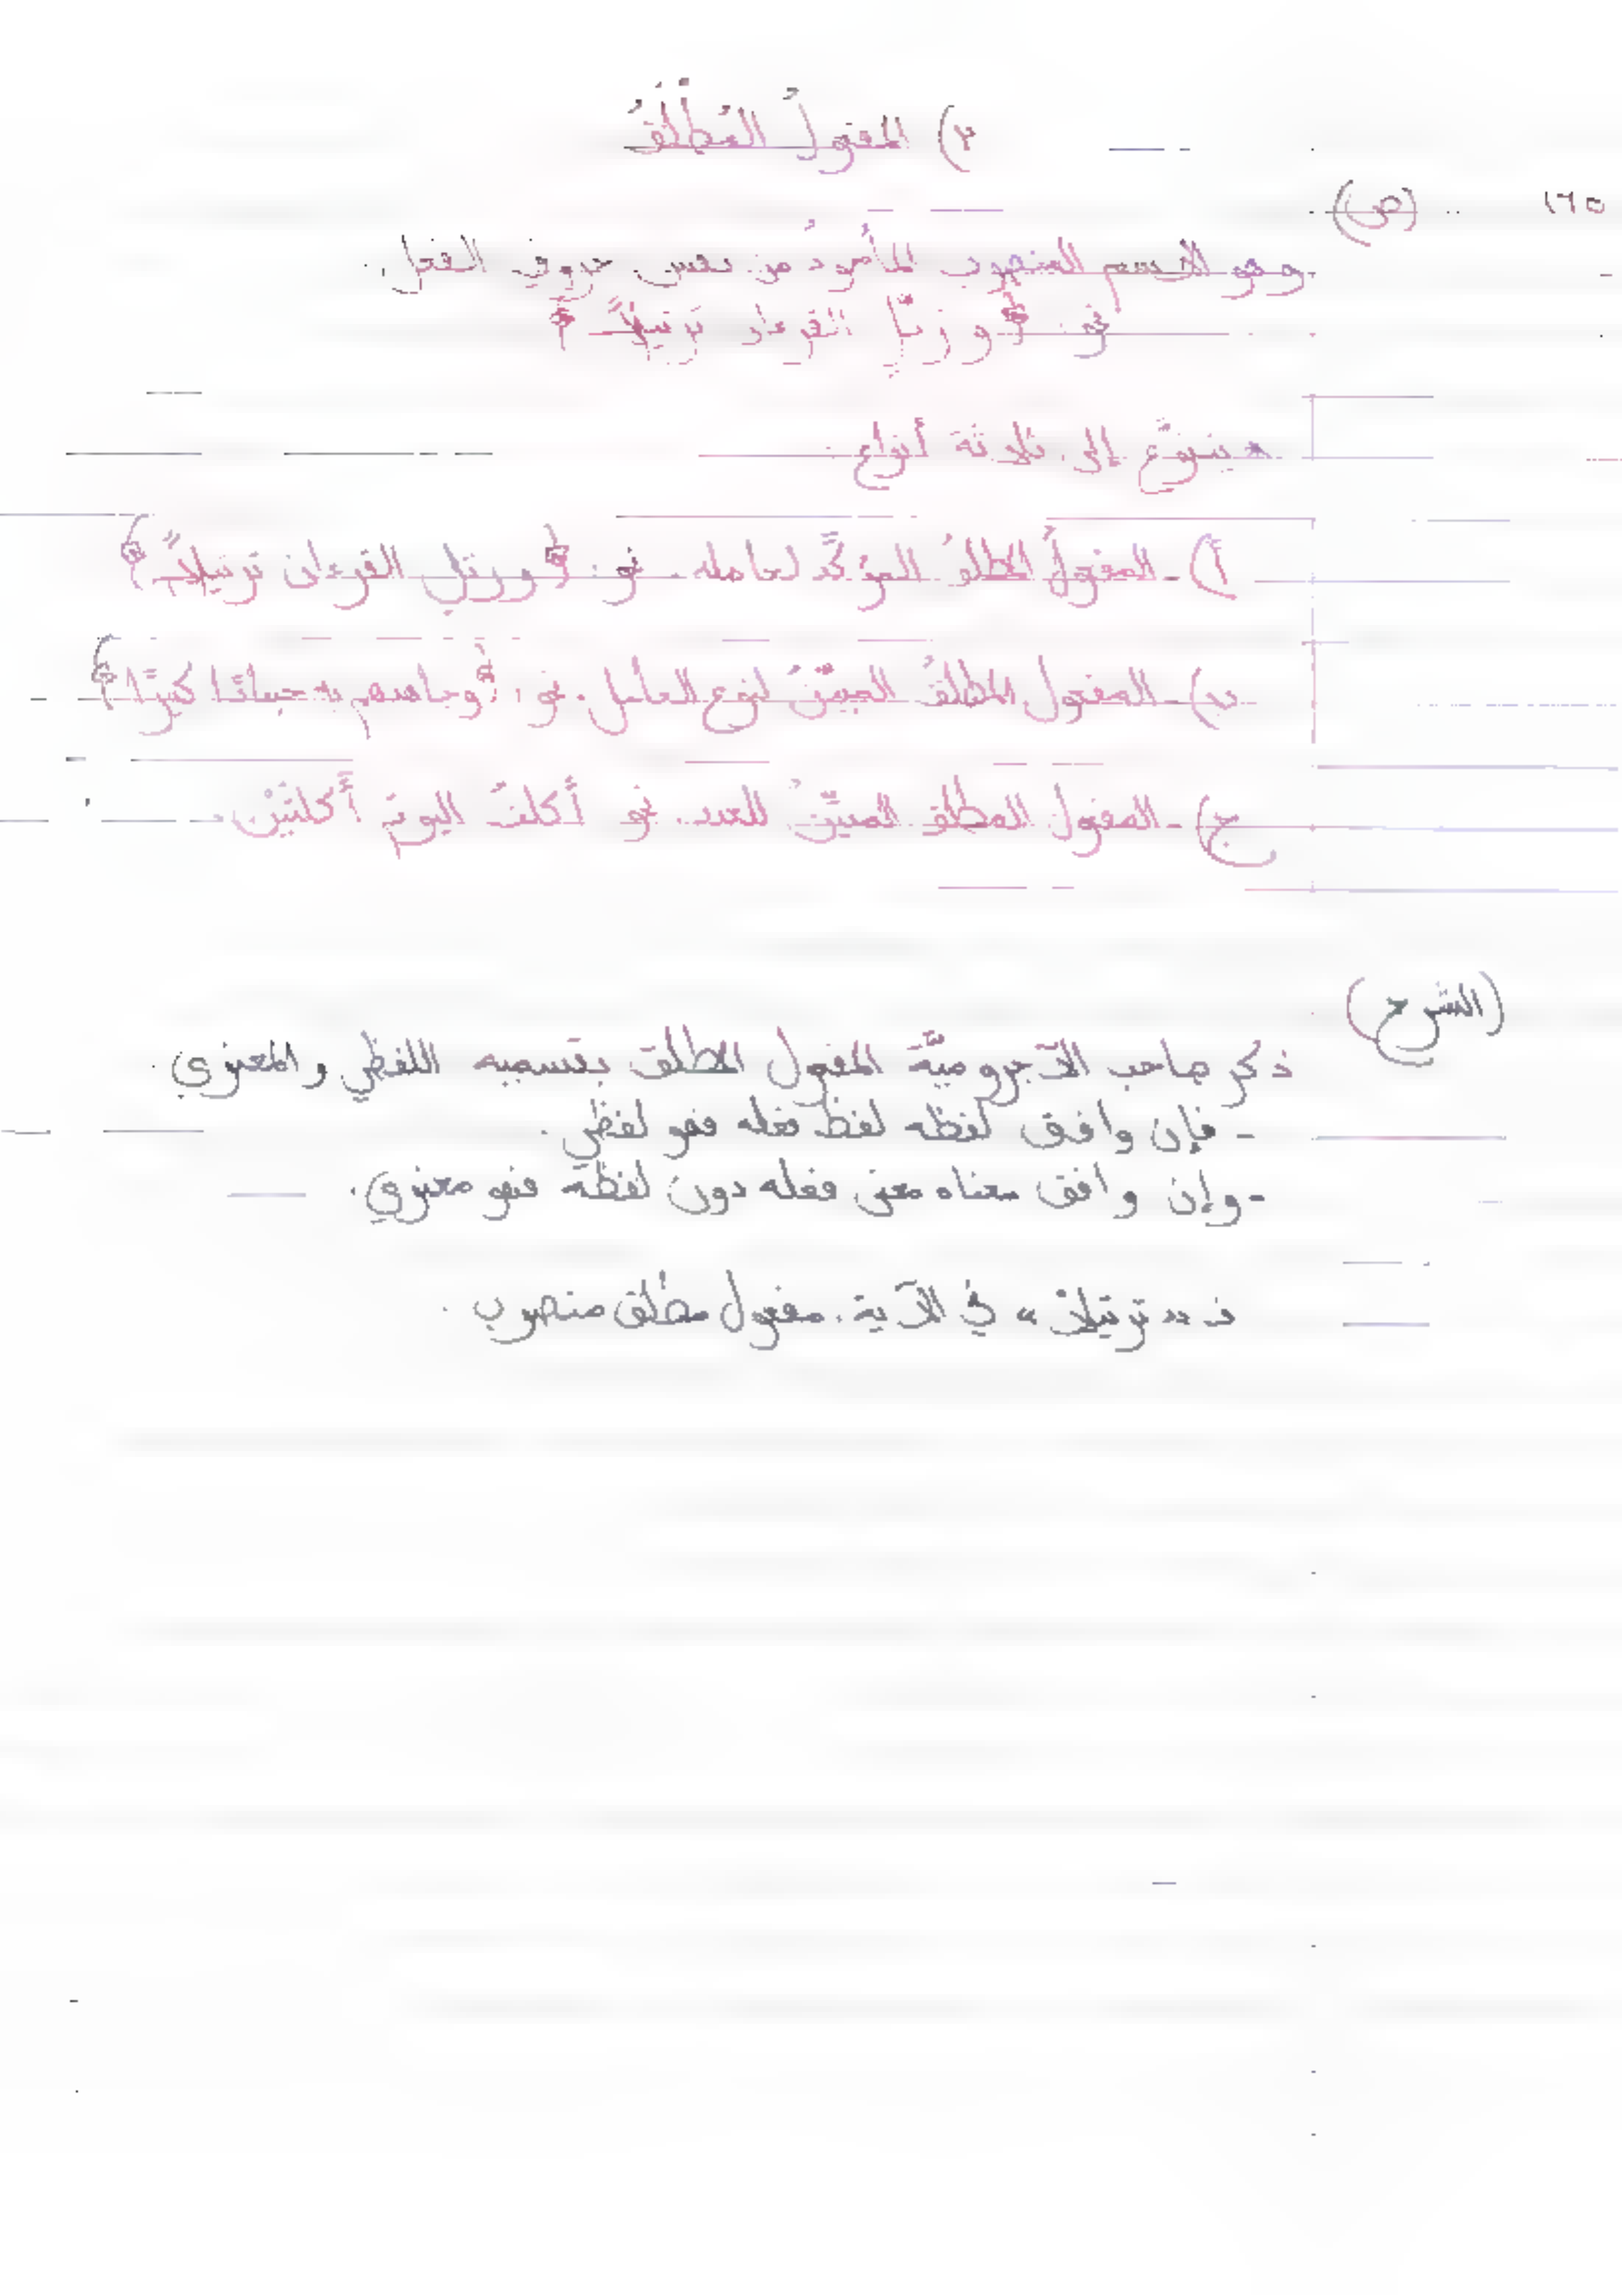 ٢) المفعولُ المُطْلَقُ
١٦٥ (ص)
وهو الاسم المنصوب المأخوذُ من نفس حروف الفعل.
نحو: ﴿ورتّل القرءان ترتيلاً﴾
* يتنوَّع إلى ثلاثة أنواع
أ)- المفعولُ المطلقُ المؤكّد لعامله. نحو: ﴿ورتل القرءان ترتيلاً﴾
ب)- المفعول المطلقُ المبيّنُ لنوع العامل. نحو: ﴿وجاهدهم به جهادًا كبيرًا﴾
ج)- المفعول المطلق المبيّنُ للعدد. نحو أكلتُ اليومَ أَكلتَيْن.
(الشرح)
ذكر صاحب الآجروميَّة المفعول المطلق بقسميه اللفظي والمعنوي.
- فإن وافق لفظه لفظ فعله فهو لفظي.
- وإن وافق معناه معنى فعله دون لفظه فهو معنوي.
فـ «ترتيلاً» في الآية. مفعول مطلق منصوب.